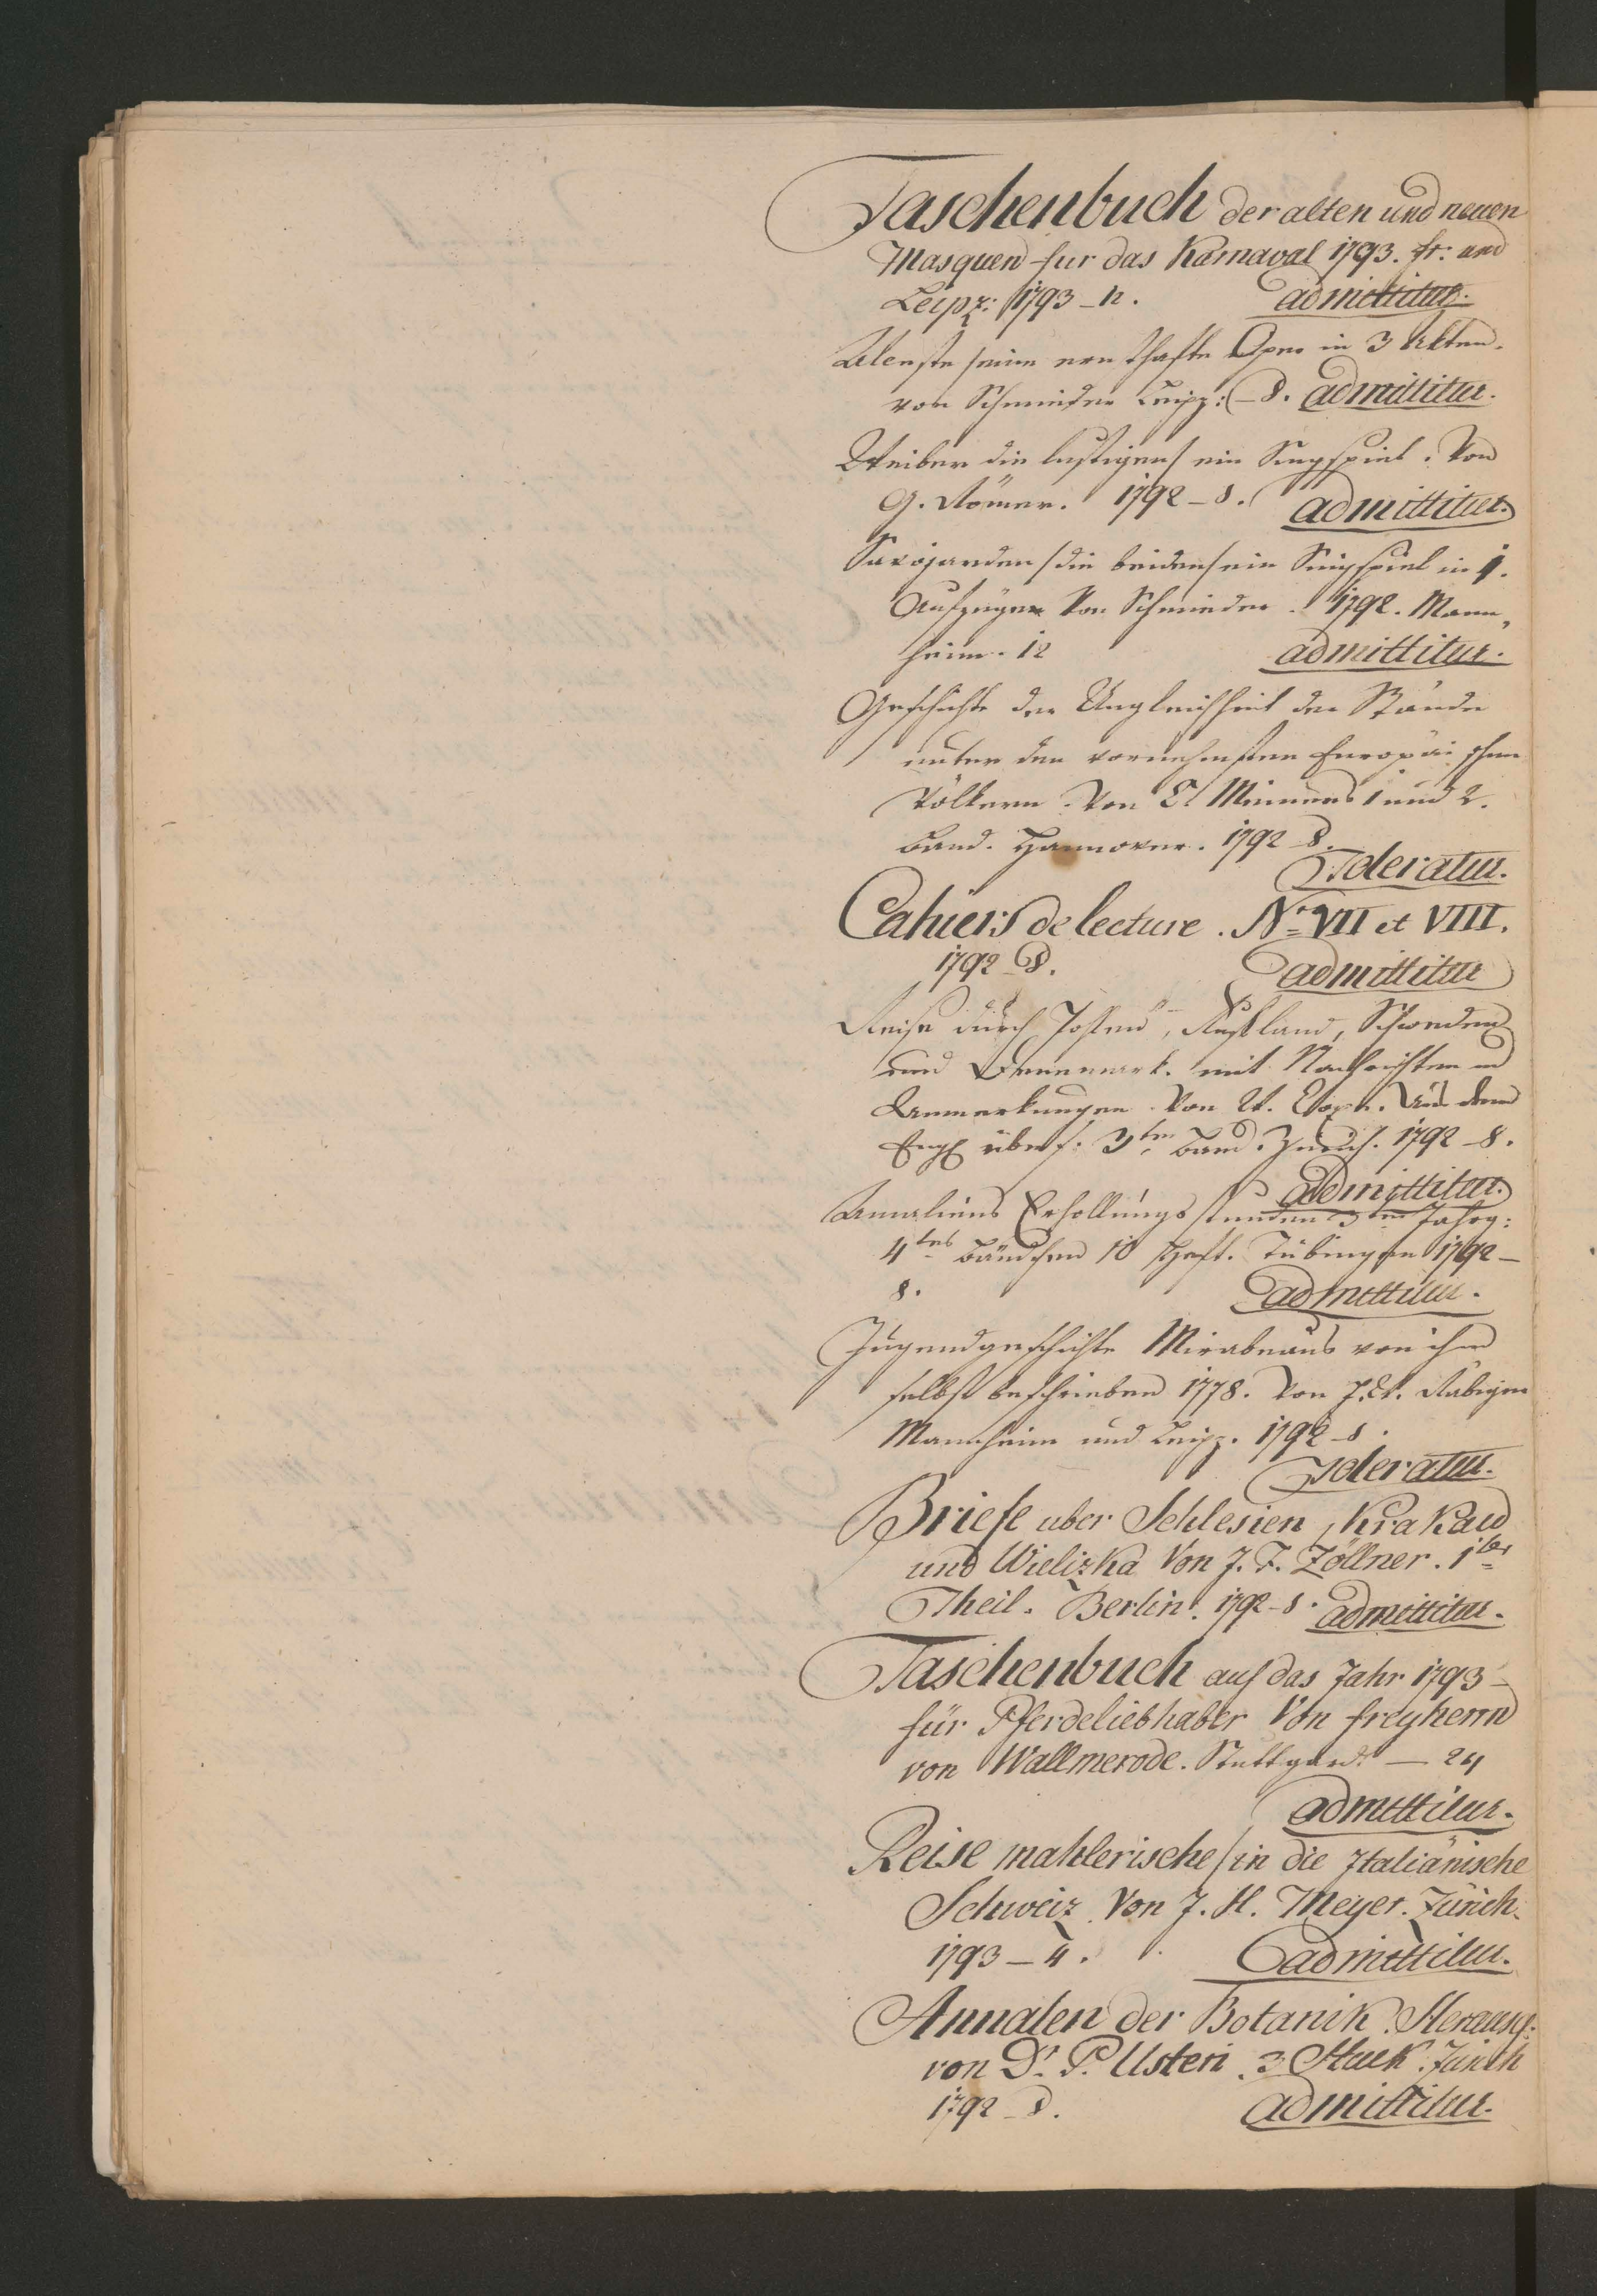 Taschenbuch der alten und neuen
Masquen fur das Karnaval 1793. fr: und
Leipz: 1793 – 12. admittitur.
Alceste / eine ernsthafte Oper in 3 Akten.
von Schmieder Leipz: – 8. admittitur.
Weiber die lustigen / ein Singspiel. Von
G. Römer. 1792 – 8. admittitur.
Savojarden / die beiden / ein Singspiel in 1.
Aufzügen Von Schmieder. 1792. Mann„
heim. 12 admittitur.
Geschichte der Ungleichheit der Stände
unter den vornehmsten Europäischen
Völkern. Von C. Meiners 1 und 2.
Band. Hannover. 1792 – 8.
Toleratur.
Cahiers de lecture. Nr. VII et VIII.
1792 – 8. admittitur
Reise durch Pohlen, Rußland, Schweden
und Dennemark. mit Nachrichten und
Anmerkungen. Von W. Coxe. Aus dem
Engl übers: 3ter Band. Zürich. 1792 – 8.
admittitur.
Amaliens Erhollungsstunden 3ter Jahrg:
4tes Bändchen 10 Heft. Tübingen 1792 –
8. admittitur.
Jugendgeschichte Mirabeaus von ihm
selbst beschrieben 1778. Von
Mannheim und Leipz. 1792 – 8.
Toleratur.
Briefe uber Schlesien, Krakau
und Wielizka Von J. F. Zöllner. 1ter
Theil. Berlin. 1792 – 8. admittitur.
Taschenbuch auf das Jahr 1793 –
für Pferdeliebhaber Von freyherrn
von Wallmerode. Stuttgard. – 24
admittitur.
Reise mahlerische / in die Italiänische
Schweiz. Von J. H. Meyer. Zürich.
1793 – 4. admittitur.
Annalen der Botanik. Herausg:
von Dr. P. Usteri. 3 Stuck. Zurich
1792 – 8. admittitur.